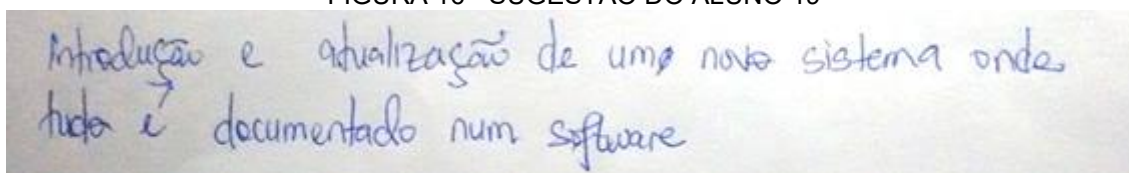 introdução e atualização de um novo sistema onde
tudo é documentado num software